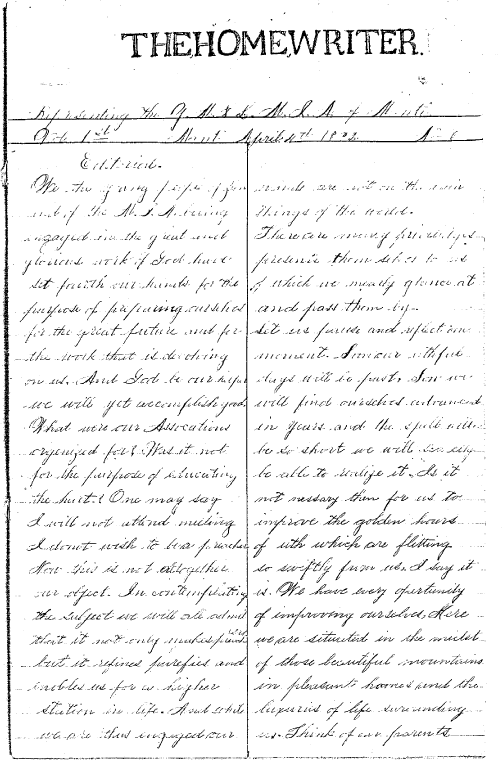 THE HOME WRITER.
Representing the Y. M. & L. M. I. A. of Manti
Vol. 1st Manti April 4th 18 2 No
Editorial.
We the young people
and of the M. I. A. being
engaged in the great and
glorious work of God have
set fourth our hands for the
purpose of prepairing ourselves
for the great future and for
the work that is devolving
on us. And God be our helper
we will yet accomplish good.
What were our Assocations
orgenized for? Was it not
for the purpose of educating
the hart? One may say
I will not attend meeting
I do not wish to be a preacher
Now this is not altogether
our object. In contemplating
the subject we will all admit
that it not only makes
but it refines purefies and
enobles us for a higher
station in life. And while
we are thus engaged our
minds are not on the vain
things of the world.
There are many priveleges
presence them selves to us
of which we nearly glance at
and pass them by.
Let us pause and reflect one
moment. Soon our uthful
days will be past. Soon we
will find ourselves advanced
in years and the spell will
be so short we will
be able to realize it. Is it
not nessary then for us to
improve the golden hours
of uth which are flitting
so swiftly from us. I say it
is. We have every opertunity
of improveing ourselves. Here
we are situated in the midst
of those beautiful mountains
in pleasant homes and the
luxuries of life surounding
us. Think of our parents